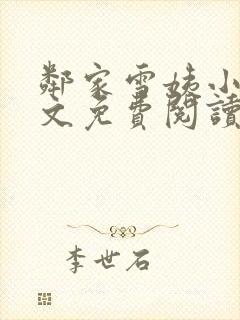 鄰家雪姨小
文免費閱讀
李世石